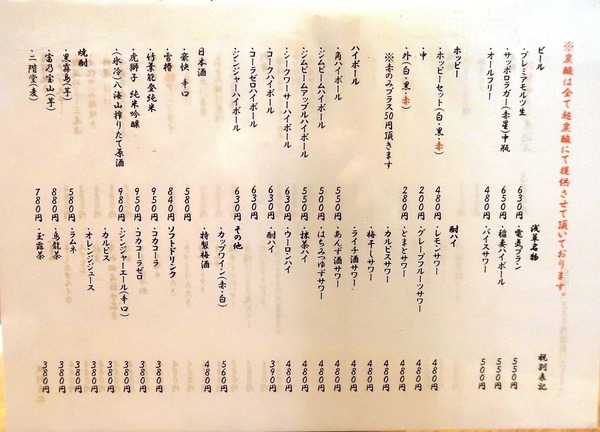 ※炭酸は全て超炭酸にて提供させて頂いております。
税別表記
ビール
・プレミアモルツ生 630円
・サッポロラガー(赤星)中瓶 650円
・オールフリー 480円
ホッピー
・ホッピーセット(白・黒・赤) 480円
・中 200円
・外(白・黒・赤) 280円
※赤のみプラス50円頂きます
ハイボール
・角ハイボール 550円
・ジムビームハイボール 500円
・ジムビームアップルハイボール 550円
・シークワーサーハイボール 630円
・コークハイボール 630円
・コーラゼロハイボール 630円
・ジンジャーハイボール 630円
日本酒
・豪快 辛口 580円
・雪椿 840円
・竹葉能登純米 950円
・虎獅子 純米吟醸 950円
・(氷冷)八海山搾りたて原酒 980円
焼酎
・黒霧島(芋) 580円
・富乃宝山(芋) 880円
・二階堂(麦) 780円
浅草名物
・電気ブラン 550円
・稲妻ハイボール 550円
・バイスサワー 500円
酎ハイ
・レモンサワー 480円
・グレープフルーツサワー 480円
・とまとサワー 480円
・カルピスサワー 480円
・梅干しサワー 480円
・ライチ酒サワー 480円
・あんず酒サワー 480円
・はちみつゆずサワー 480円
・抹茶ハイ 480円
・ウーロンハイ 480円
・酎ハイ 390円
その他
・カップワイン(赤・白) 560円
・特製梅酒 480円
ソフトドリンク
・コカコーラ 380円
・コカコーラゼロ 380円
・ジンジャーエール(辛口) 380円
・カルピス 380円
・オレンジジュース 380円
・ラムネ 380円
・烏龍茶 380円
・玉露茶 380円